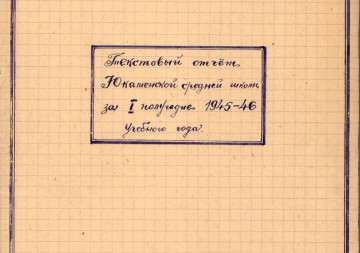 Текстовый отчёт
Юкаменской средней школы
за I полугодие 1945-46
учебного года.